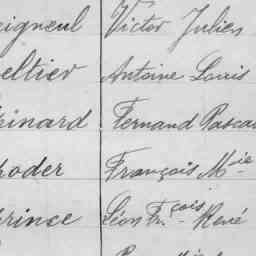 eigneul Victor Julien
eltier Antoine Louis
rinard Fernand Pascal
hoder François M.ie
rince Léon Fr.çois René